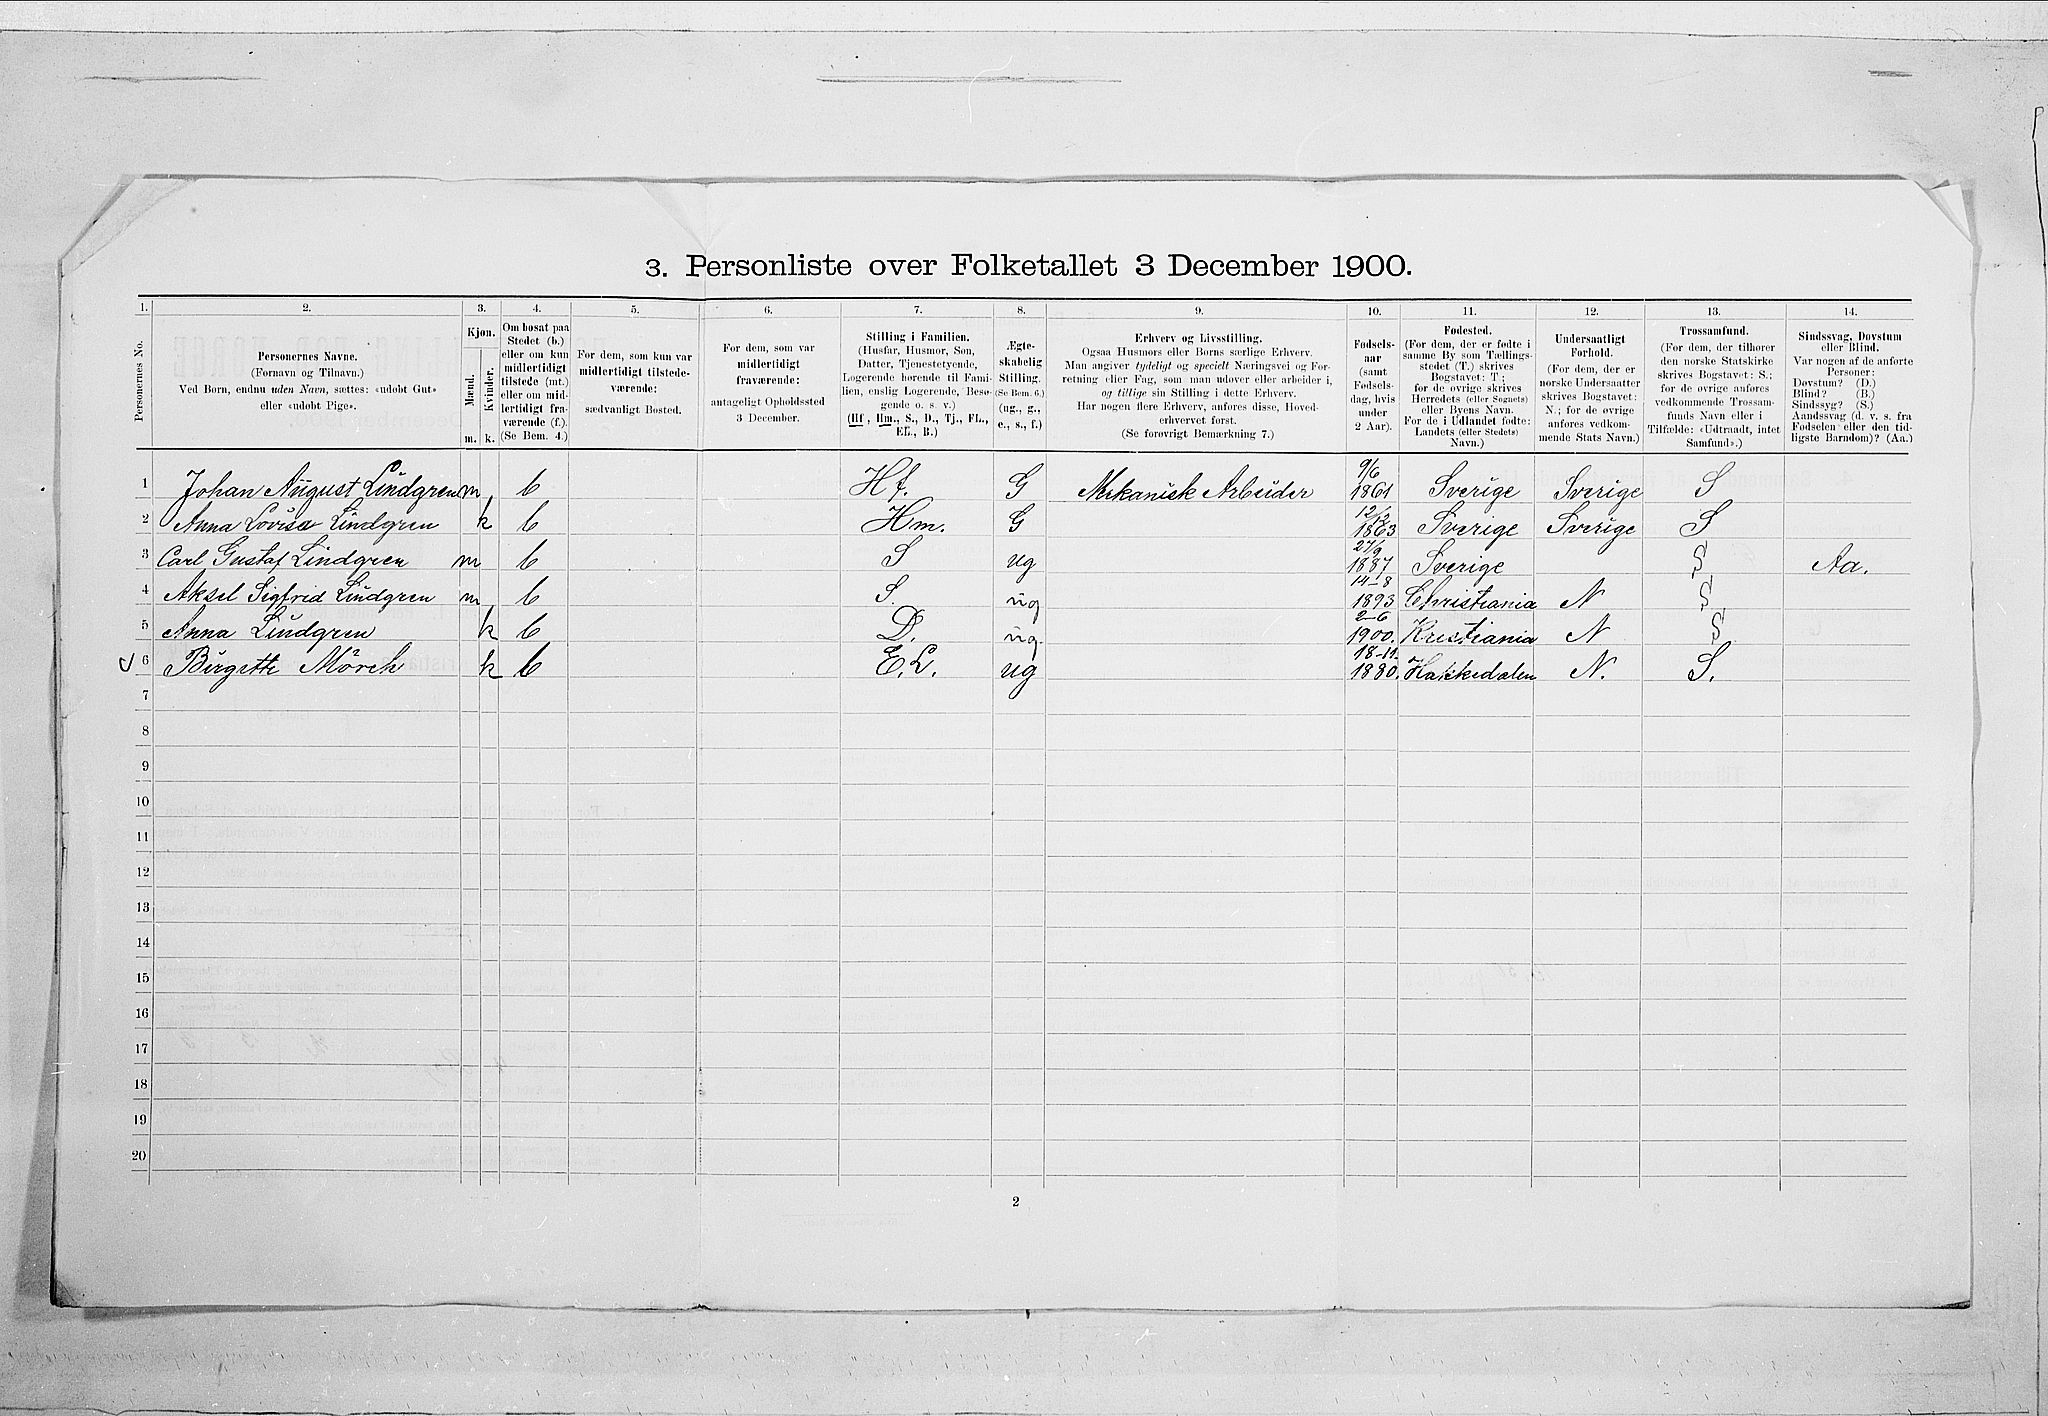 3. Personliste over Folketallet 3 December 1900.
1. 2. 3. 4. 5. 6. 7. 8. 9. 10. 11. 12. 13. 14.
Personernes No.
Personernes Navne.
(Fornavn og Tilnavn.)
Ved Børn, endnu uden Navn, sættes: «udøbt Gut»
eller «udøbt Pige».
Kjøn.
Mænd.
Kvinder.
m. k.
Om bosat paa
Stedet (b.)
eller om kun
midlertidigt
tilstede (mt.)
eller om mid-
lertidigt fra-
værende (f.).
(Se Bem. 4.)
For dem, som kun var
midlertidigt tilstede-
værende:
sædvanligt Bosted.
For dem, som var
midlertidigt
fraværende:
antageligt Opholdssted
3 December.
Stilling i Familien.
(Husfar, Husmor, Søn,
Datter, Tjenestetyende,
Logerende hørende til Fami-
lien, enslig Logerende, Besø-
gende o. s. v.)
(Hf., Hm., S., D., Tj., FL.,
EL., B.)
Ægte-
skabelig
Stilling.
(Se Bem. 6.)
(ug., g.,
e., s., f.)
Erhverv og Livsstilling.
Ogsaa Husmors eller Børns særlige Erhverv.
Man angiver tydeligt og specielt Næringsvei og For-
retning eller Fag, som man udøver eller arbeider i,
og tillige sin Stilling i dette Erhverv.
Har nogen flere Erhverv, anføres disse, Hoved-
erhvervet først.
(Se forøvrigt Bemærkning 7.)
Fødsels-
aar
(samt
Fødsels-
dag, hvis
under
2 Aar).
Fødested.
(For dem, der er fødte i
samme By som Tællings-
stedet (T.) skrives
Bogstavet: T;
for de øvrige skrives
Herredets (eller Sognets)
eller Byens Navn.
For de i Udlandet fødte:
Landets (eller Stedets)
Navn.)
Undersaatligt
Forhold.
(For dem, der er
norske Undersaatter
skrives Bogstavet:
N.; for de øvrige
anføres vedkom-
mende Stats Navn.)
Trossamfund.
(For dem, der tilhører
den norske Statskirke
skrives Bogstavet: S.;
for de øvrige anføres
vedkommende Trossam-
funds Navn eller i
Tilfælde: «Udtraadt, intet
Samfund».)
Sindssvag, Døvstum
eller Blind.
Var nogen af de anførte
Personer:
Døvstum? (D.)
Blind? (B.)
Sindssyg? (S.)
Aandssvag (d. v. s. fra
Fødselen eller den tid-
ligste Barndom)? (Aa.)
1 Johan August Lindgren m b Hf. G Mekanisk Arbeider 9/6 1861 Sverige Sverige S
2 Anna Lovise Lindgren k b Hm. G 1863 Sverige Sverige S
3 Carl Gustaf Lindgren m b S ug 27/9 1887 Sverige S Aa.
4 Aksel Sigfrid Lindgren m b S. ug 14-8 1893 Christiania N S
5 Anna Lindgren k b D. ug. 2-6 1900. Kristiania N S
6 Birgitte Mörch k b E.L. ug 18-11 1880. Hakkedalen N. S.
7
8
9
10
11
12
13
14
15
16
17
18
19
20
2